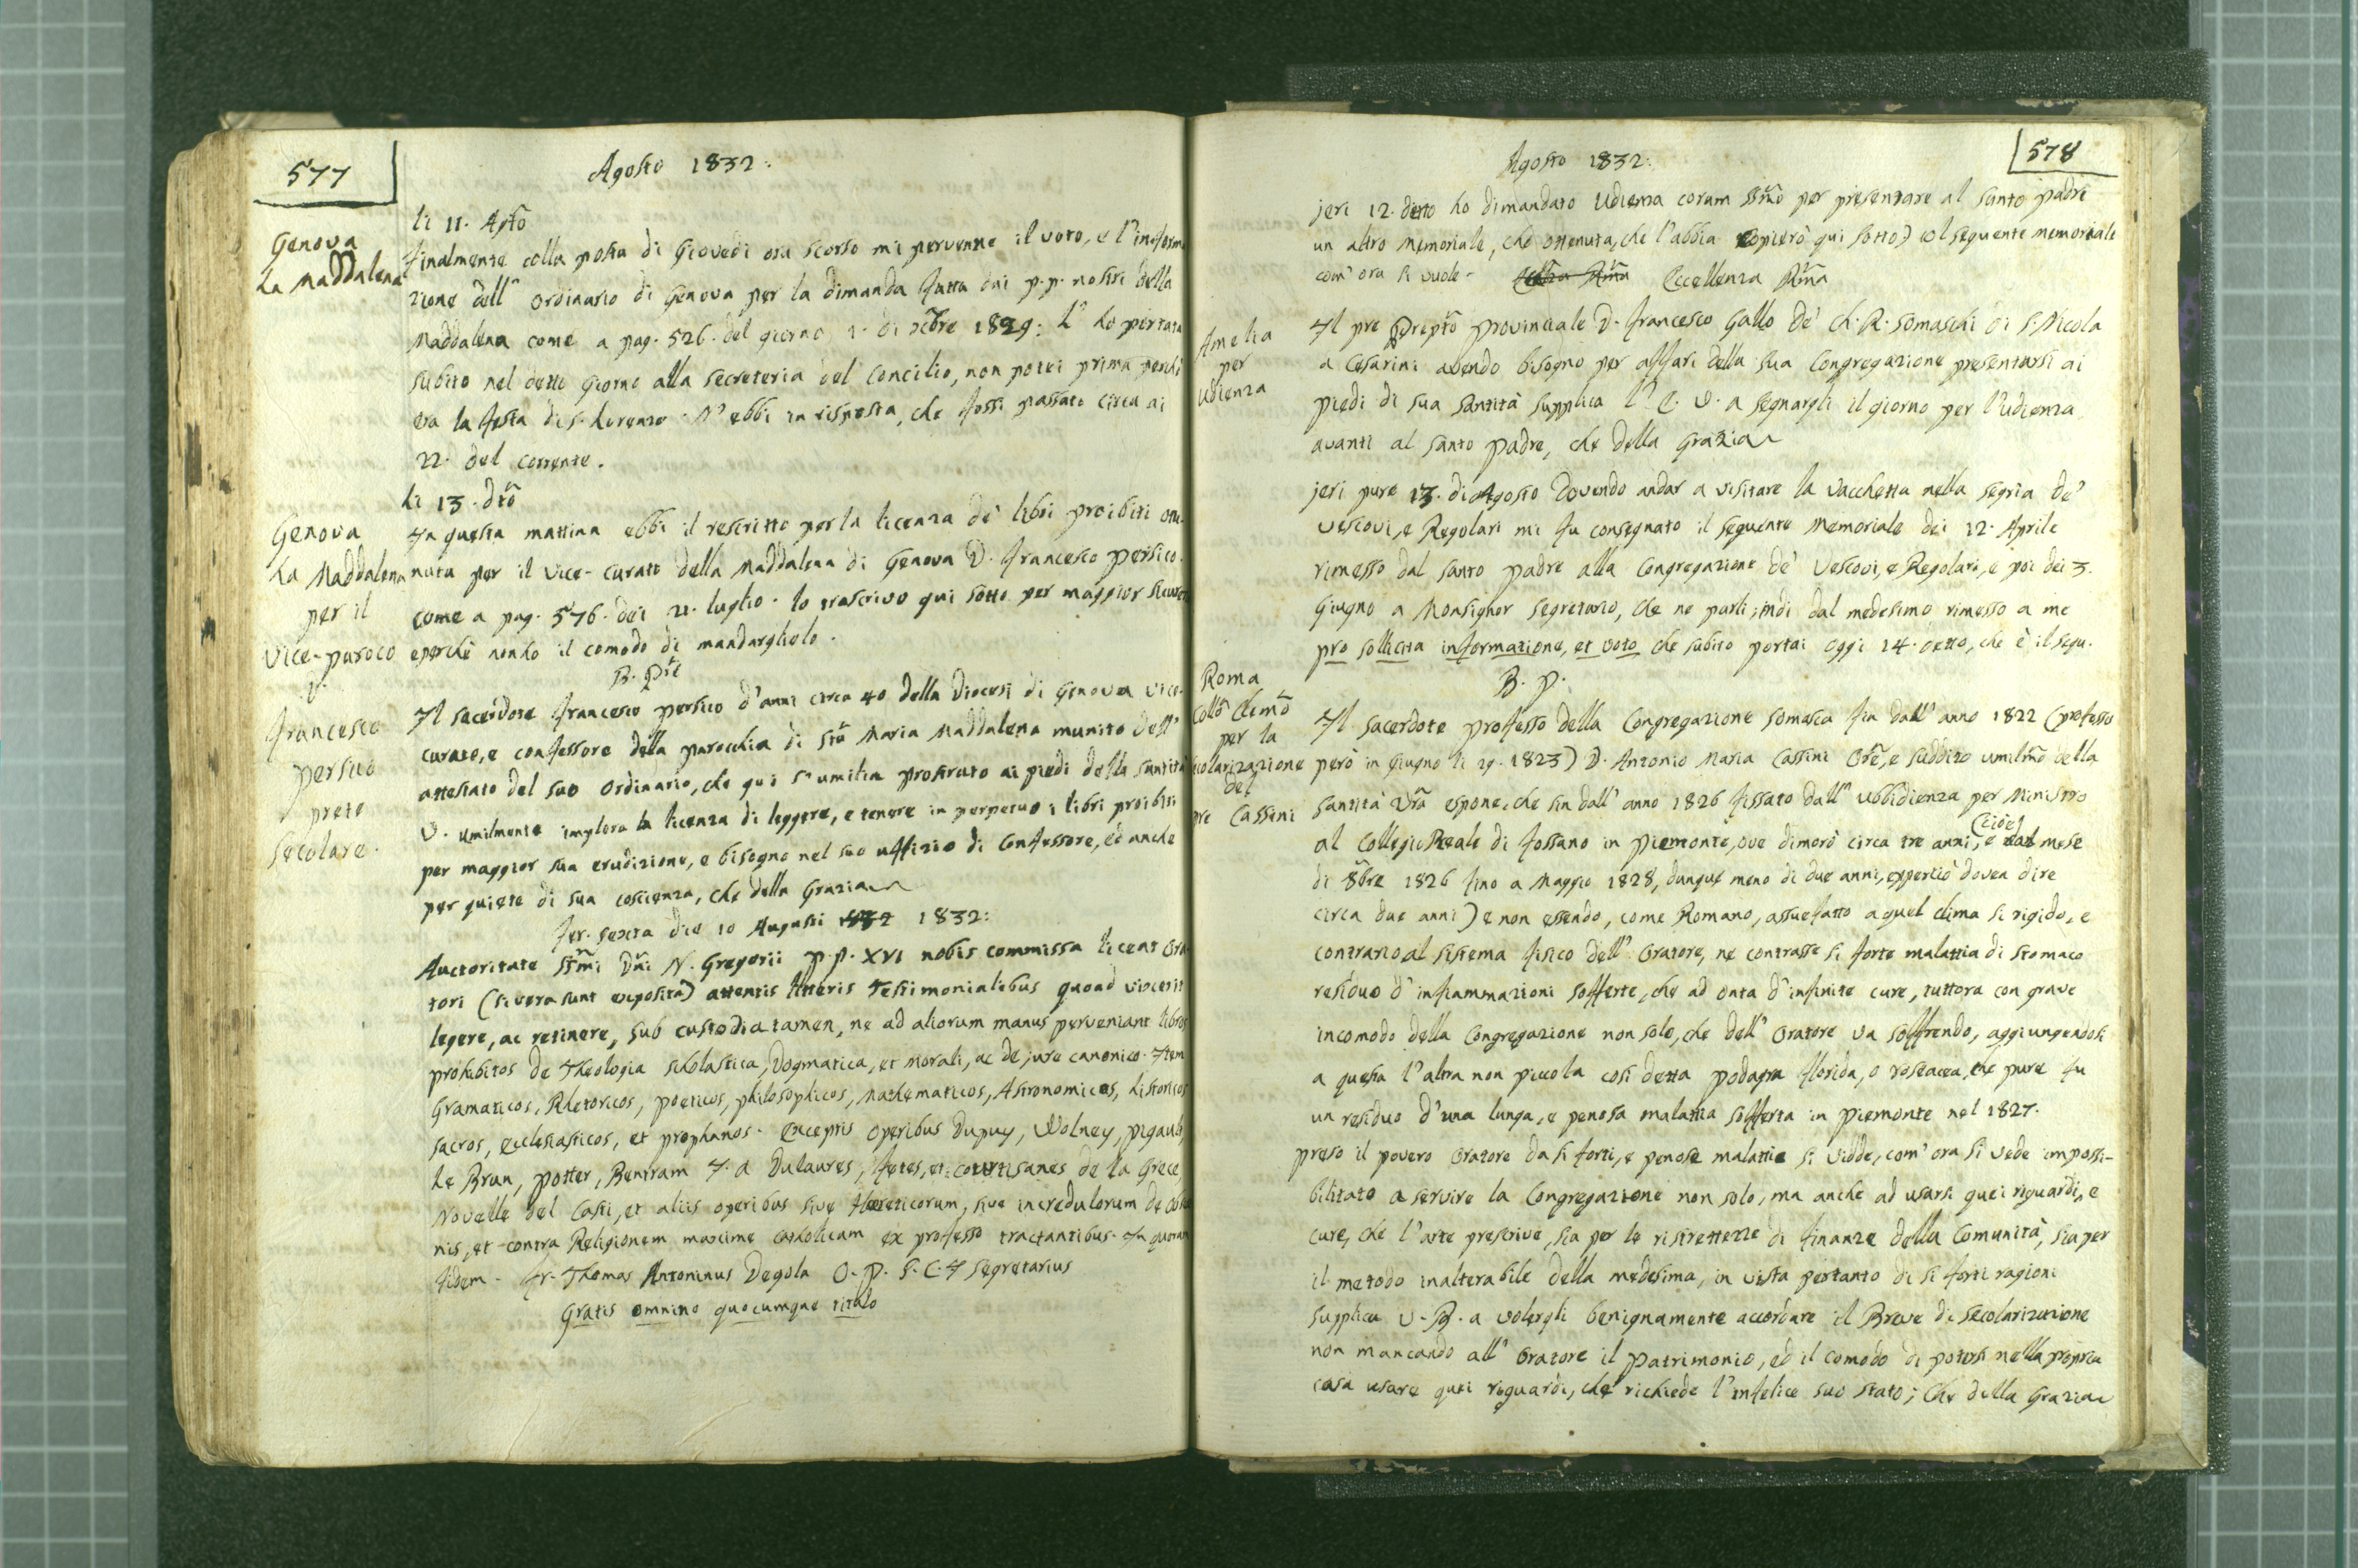 577
Agosto 1832:
Genova
La Maddalena
li 11. Agto
Finalmente colla posta di Giovedì ora scorso mi pervenne il voto, e l'informa
zione dell' Ordinario di Genova per la dimanda fatta dai p.p. nostri della
Maddalena come a pag. 526. del giorno 1. di xbre 1829: L' ho portata
subito nel detto giorno alla secreteria del Concilio, non potei prima perchè
era la festa di s. Lorenzo. N' ebbi in risposta, che fossi passato circa ai
22. del corrente.
li 13. dto
Genova
La Maddalena
per il
Vice-paroco
D.
Francesco
Persico
prete
secolare.
In questa mattina ebbi il rescritto per la licenza de' libri proibiti otte
nuta per il Vice-curato della Maddalena di Genova D. Francesco Persico.
come a pag. 576. dei 21. luglio. lo trascrivo qui sotto per maggior sicurezza
e perchè non ho il comodo di mandarglielo.
B. Pre
Il sacerdote Francesco Persico d'anni circa 40 della Diocesi di Genova Vice-
curato, e confessore della parocchia di Sta Maria Maddalena munito dell'
attestato del suo Ordinario, che qui s' umilia prostrato ai piedi della Santità
V. umilmente implora la licenza di leggere, e tenere in perpetuo i libri proibiti
per maggior sua erudizione, e bisogno nel suo uffizio di Confessore, ed anche
per quiete di sua coscienza, che della Grazia
Fer. sexta die 10 Augusti 1832:
Auctoritate SSmi Dni N. Gregorii P.P. XVI nobis commissa liceat Ora
tori (si vera sunt exposita) attentis litteris Testimonialibus quoad vixerit
legere, ac retinere, sub custodia tamen, ne ad aliorum manus perveniant libros
prohibitos de Theologia scholastica, Dogmatica, et Morali, ac de jure canonico. Item
Gramaticos, Rhetoricos, poeticos, philosophicos, Mathematicos, Astronomicos, historicos
sacros, ecclesiasticos, et prophanos. Exceptis operibus Dupuy, Wolney, pigault
Le Brun, Potter, Bentram I. A Dulaures, fetes, et courtisanes de la Grece,
Novelle del Casti, et aliis operibus sive Hereticorum, sive incredulorum de
nis, et contra Religionem maxime catholicam ex professo tractantibus. In quorum
fidem - Fr. Thomas Antoninus Degola O. P. S. C. I segretarius
Gratis omnino quocumque titulo
578
Agosto 1832:
jeri 12. detto ho dimandato Udienza coram SSmo per presentare al Santo padre
un altro Memoriale, che ottenuta, che l'abbia copierò qui sotto) col seguente memoriale
com' ora si vuole - Eccellenza Rma
Amelia
per
Udienza
Il pre Prepto provinciale D. Francesco Gallo de' Ch. R. Somaschi di S. Nicola
a Cesarini avendo bisogno per affari della sua Congregazione presentarsi ai
piedi di sua Santità supplica l' E. V. a segnargli il giorno per l'udienza
avanti al Santo Padre, che della Grazia
jeri pure 13. di Agosto dovendo andar a visitare la vacchetta nella segria de'
Vescovi, e Regolari mi fu consegnato il seguente Memoriale dei 12. Aprile
rimesso dal Santo Padre alla Congregazione de' Vescovi, e Regolari, e poi dei 3.
Giugno a Monsignor Segretario, che ne parli; indi dal medesimo rimesso a me
pro sollicita informatione, et voto che subito portai oggi 14. detto, che è il segu.
B. P.
Roma
Collo Clemo
per la
secolarizazione
del
pre Cassini
Il sacerdote professo della Congregazione Somasca fin dall' anno 1822 (professo
però in Giugno li 29. 1823) D. Antonio Maria Cassini Ore, e suddito umilmo della
Santità Vra espone, che sin dall' anno 1826 fissato dall' Ubbidienza per Ministro
al Collegio Reale di Fossano in Piemonte, ove dimorò circa tre anni, (cioè dal mese
di 8bre 1826 fino a Maggio 1828, dunque meno di due anni, e perciò dovea dire
circa due anni) e non essendo, come Romano, assuefatto a quel clima sì rigido, e
contrario al sistema fisico dell' Oratore, ne contrasse sì forte malattia di stomaco
residuo d' infiammazioni sofferte, che ad onta d' infinite cure, tuttora con grave
incomodo della Congregazione non solo, che dell' Oratore va soffrendo, aggiungendosi
a questa l'altra non piccola così detta podagra florida, o rosacea, che pure fu
un residuo d'una lunga, e penosa malattia sofferta in Piemonte nel 1827.
preso il povero Oratore da sì forti, e penose malattie si vidde, com' ora si vede impossi-
bilitato a servire la Congregazione non solo, ma anche ad usarsi quei riguardi, e
cure, che l'arte prescrive, sia per le ristrettezze di finanze della Comunità, sia per
il metodo inalterabile della medesima, in vista pertanto di sì forti ragioni
supplica V. B. a volergli benignamente accordare il Breve di secolarizazione
non mancando all' Oratore il Patrimonio, ed il comodo di potersi nella propria
casa usare quei riguardi, che richiede l'infelice suo stato; Che della Grazia